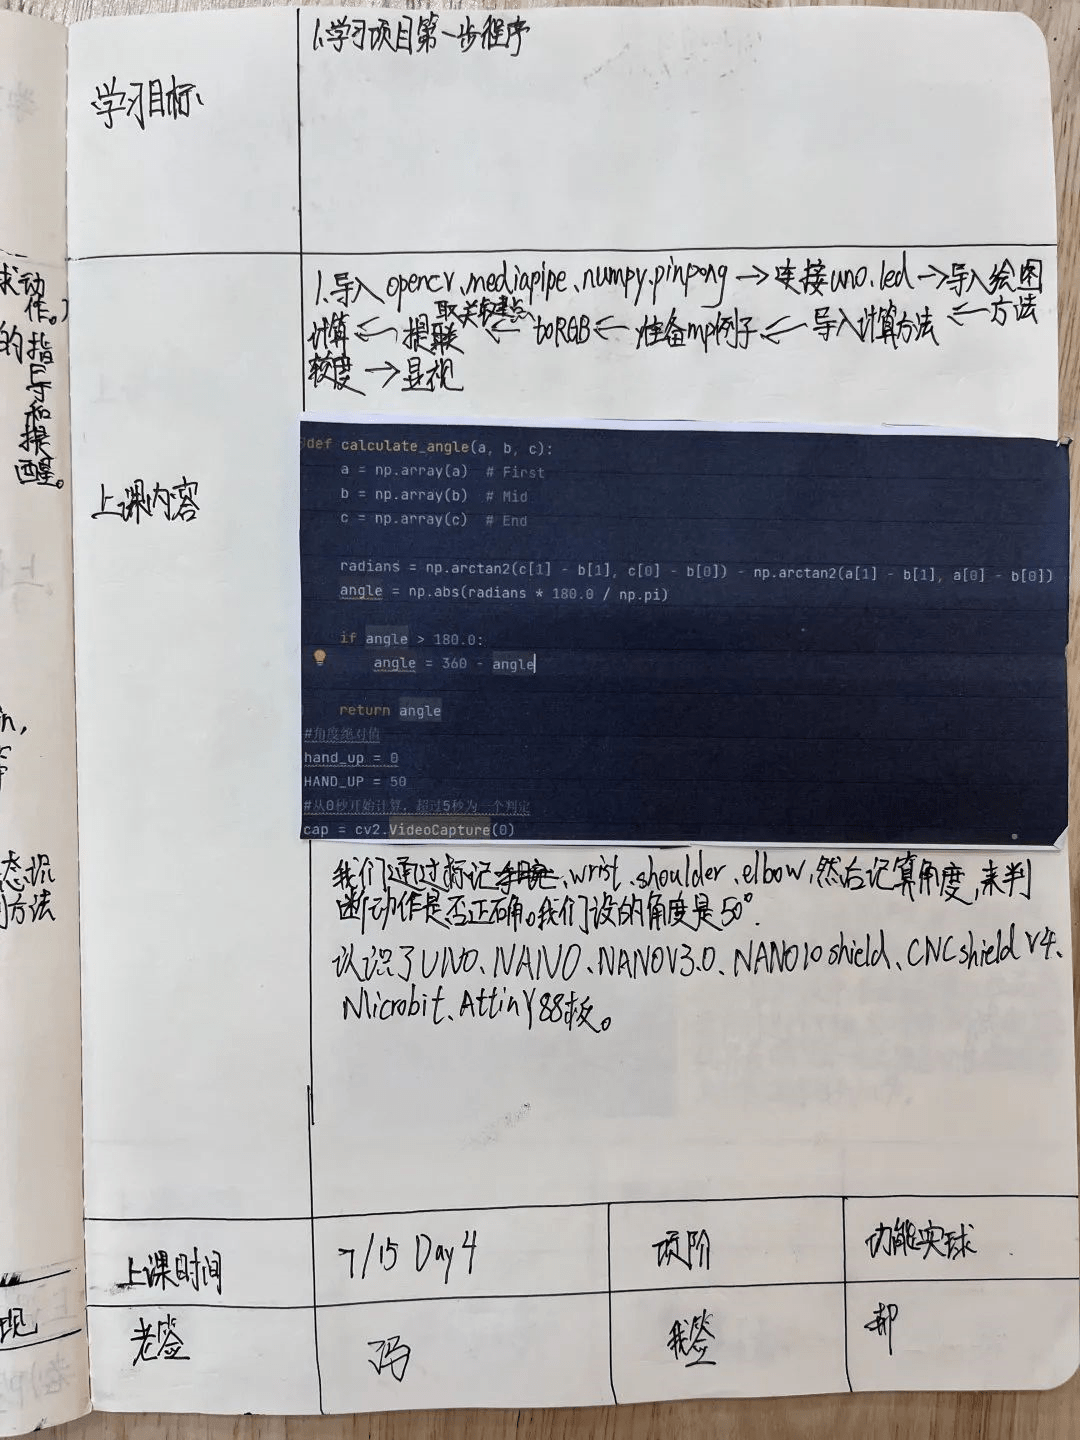 学习目标
1.学习项目第一步程序
上课内容
1.导入 opencv、mediapipe、numpy、pinpong→连接uno、led→导入绘图
取关键点
计算⇐ 提 ⇐ toRGB⇐ 准备mp例子⇐ 导入计算方法⇐方法
度→显视
def calculate_angle(a, b, c):
a = np.array(a)  # First
b = np.array(b)  # Mid
c = np.array(c)  # End
radians = np.arctan2(c[1] - b[1], c[0] - b[0]) - np.arctan2(a[1] - b[1], a[0] - b[0])
angle = np.abs(radians * 180.0 / np.pi)
if angle > 180.0:
angle = 360 - angle
return angle
#角度绝对值
hand_up = 0
HAND_UP = 50
#从0秒开始计算，超过5秒为一个判定
cap = cv2.VideoCapture(0)
我们通过标记、wrist、shoulder、elbow,然后记算角度,来判
断动作是否正确。我们设的角度是50°.
认识了UNO、NANO、NANOV3.0、NANOIO shield、CNC shield V4、
Microbit、Attiny88板。
上课时间
7/15 Day 4
项阶
功能实
老签
冯
我签
郝
求动
作。)
的指
导和
提
醒。
n,
态抓
方法
现